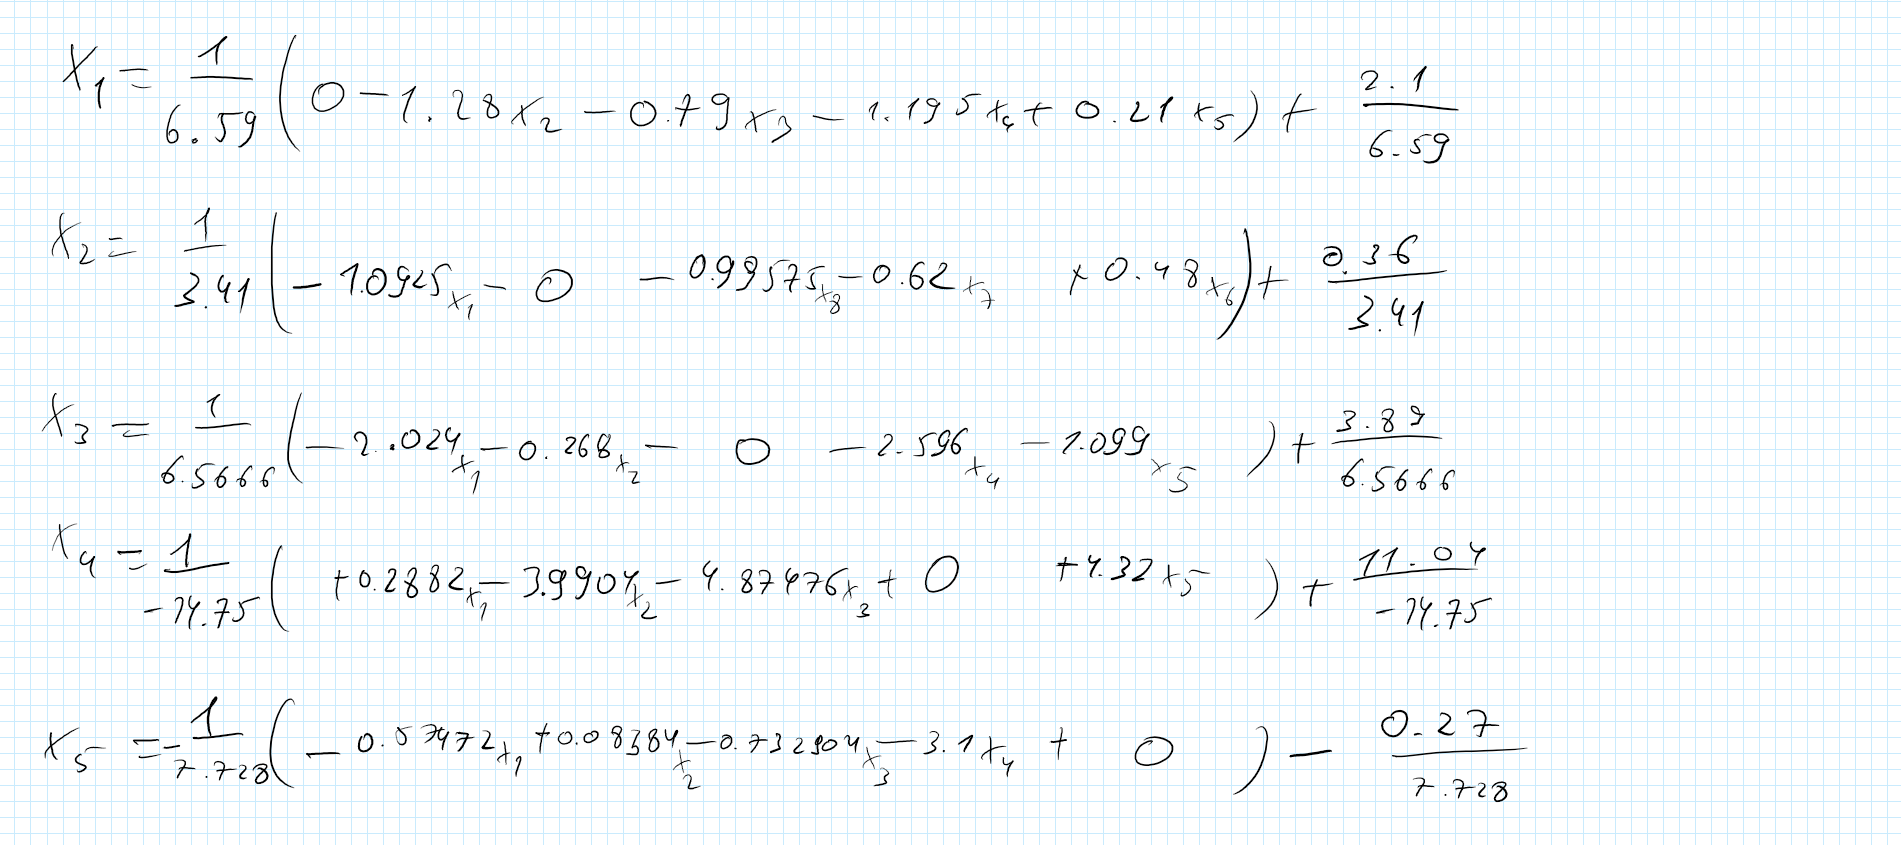 X₁ = 1/6.59 (0 - 1.28x₂ - 0.79x₃ - 1.195x₄ + 0.21x₅) + 2.1/6.59
X₂ = 1/3.41 (- 1.0925x₁ - 0 - 0.99575x₈ - 0.62x₇ × 0.48x₆) + 0.36/3.41
X₃ = 1/6.5666 (- 2.024x₁ - 0.268x₂ - 0 - 2.596x₄ - 1.099x₅) + 3.89/6.5666
X₄ = 1/-14.75 (+0.2882x₁ - 3.9904x₂ - 4.87476x₃ + 0 +4.32x₅) + 11.04/-14.75
X₅ = -1/7.728 (- 0.57472x₁ +0.08384x₂ - 0.732904x₃ - 3.1x₄ + 0) - 0.27/7.728